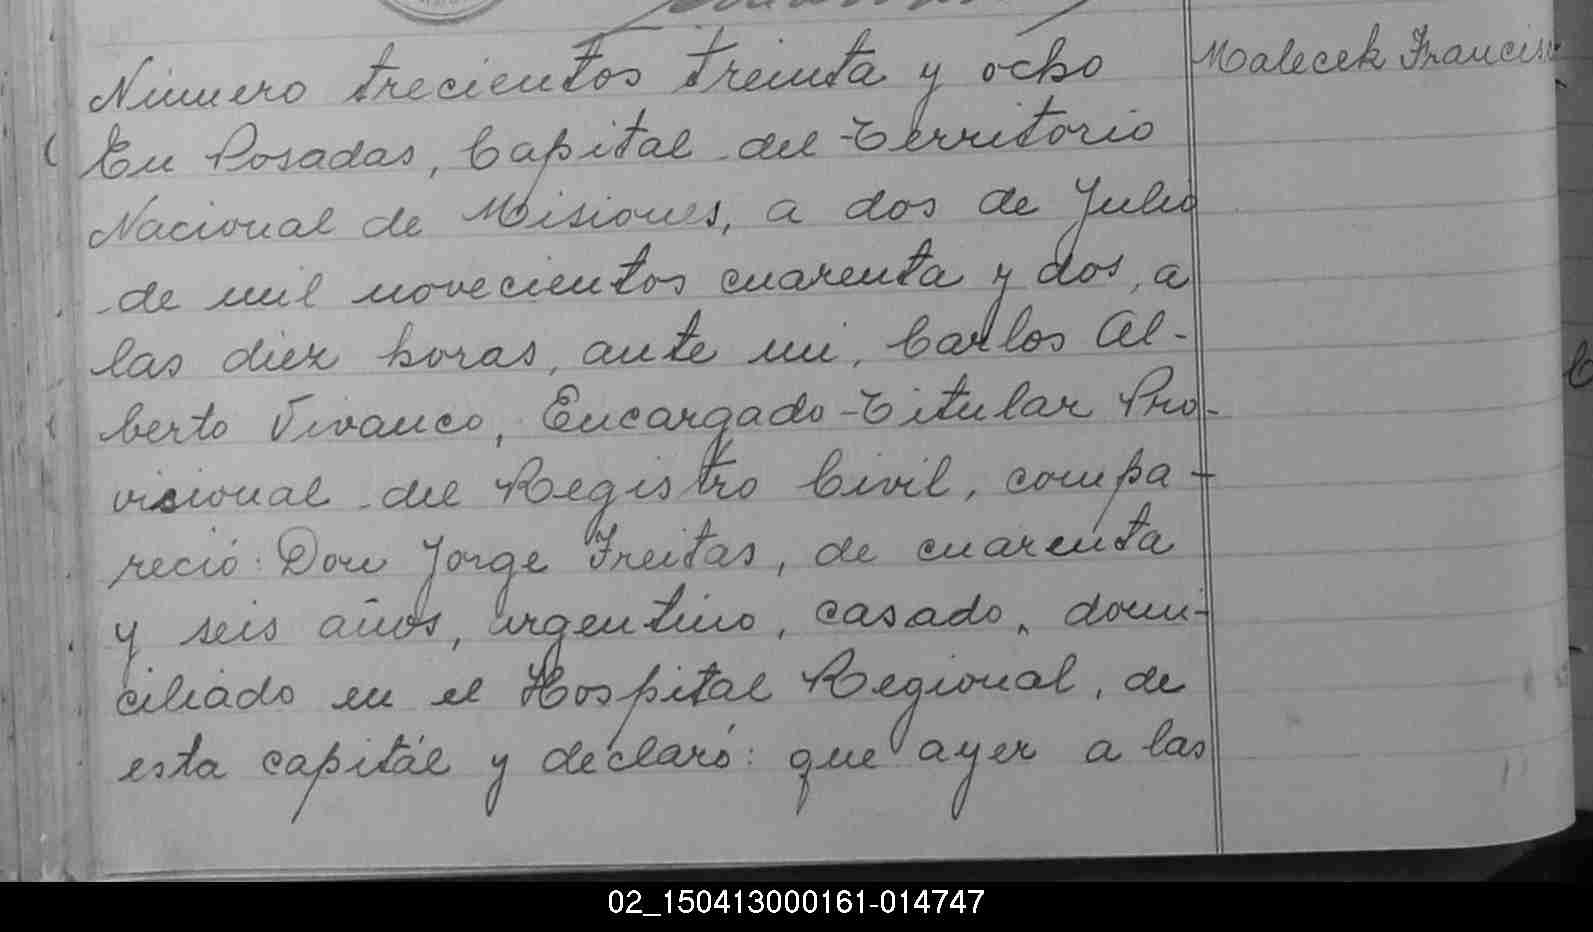 Número trecientos treinta y ocho
Malecek Francisc
En Posadas, Capital del Territorio
Nacional de Misiones, a dos de Julio
de mil novecientos cuarenta y dos, a
las diez horas, ante mi, Carlos Al-
berto Vivanco, Encargado Titular Pro-
visional del Registro Civil, compa-
reció: Don Jorge Freitas, de cuarenta
y seis años, argentino, casado, domi-
ciliado en el Hospital Regional, de
esta capitál y declaró: que ayer a las
02_150413000161-014747